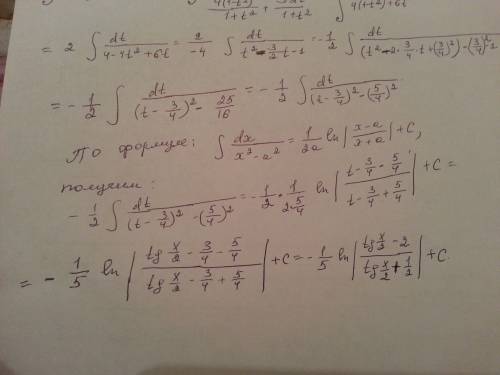 4(1-t²)/(1+t²) + 1+t² ∫ 4(1-t²)+6t
= 2 ∫ dt/(4-4t²+6t) = 2/-4 ∫ dt/(t²-3/2 t-1) = -1/2 ∫ dt/((t²-2·3/4·t+(3/4)²)-(3/4)²-1
= -1/2 ∫ dt/((t-3/4)²-25/16) = -1/2 ∫ dt/((t-3/4)²-(5/4)²)
По формуле: ∫ dx/(x²-a²) = 1/2a ln|(x-a)/(x+a)|+C,
получим:
-1/2 ∫ dt/((t-3/4)²-(5/4)²) = -1/2 · 1/(2·5/4) ln|(t-3/4-5/4)/(t-3/4+5/4)|+C =
= -1/5 ln|(tg x/2 - 3/4 - 5/4)/(tg x/2 - 3/4 + 5/4)|+C = -1/5 ln|(tg x/2 - 2)/(tg x/2 + 1/2)|+C.